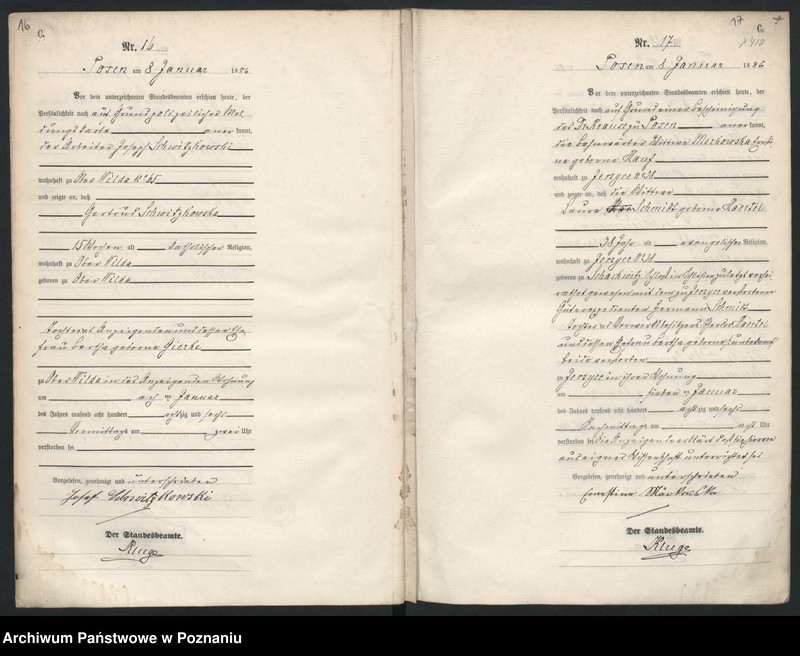 16
C.
Nr. 16
Posen am 8 Januar 1886
Vor dem unterzeichneten Standesbeamten erschien heute, der
Persönlichkeit nach auf Grund polizeilicher Mel-
dungskarte anerkannt,
der Arbeiter Josef Schwitzkowski
wohnhaft zu Ober Wilda No 25
und zeigte an, daß
Gertrud Schwitzkowska
15 Wochen alt katholischer Religion,
wohnhaft zu Ober Wilda
geboren zu Ober Wilda
Tochter des Anzeigenden und dessen Ehe-
frau Bertha geborne Gierke
zu Ober Wilda in des Anzeigenden Wohnung
am acht ten Januar
des Jahres tausend acht hundert achtzig und sechs
Vormittags um zwei Uhr
verstorben sei
Vorgelesen, genehmigt und unterschrieben
Josef Schwitzkowski
Der Standesbeamte.
Kluge
17
C.
Nr. 17
Posen am 8 Januar 1886
Vor dem unterzeichneten Standesbeamten erschien heute, der
Persönlichkeit nach auf Grund einer Bescheinigung
des Dr Krause zu Posen anerkannt,
die Bahnwärter Wittwe
geborne Hauf
wohnhaft zu Jerzyce No 31
und zeigte an, daß die Wittwe
Laura Schmidt geborne
38 Jahr alt evangelischer Religion,
wohnhaft zu Jerzyce No 31
geboren zu in Schlesien zuletzt verhei-
rathet gewesen mit dem zu Jerzyce verstorbenen
Güterexpedienten Hermann Schmidt
Tochter des Vorwerksbesitzers
und dessen Ehefrau Bertha geborne unbekannt
beide verstorben
zu Jerzyce in ihrer Wohnung
am sieben ten Januar
des Jahres tausend acht hundert achtzig und sechs
Nachmittags um acht Uhr
verstorben sei Die Anzeigende erklärt daß sie hiervon
aus eigner Wissenschaft unterrichtet sei
Vorgelesen, genehmigt und unterschrieben
Ernestine
Der Standesbeamte.
Kluge
Archiwum Państwowe w Poznaniu